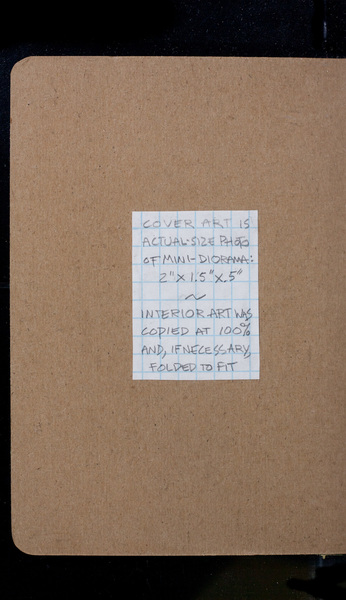 COVER ART IS
ACTUAL-SIZE PHOTO
OF MINI-DIORAMA:
2" X 1.5" X .5"
~
INTERIOR ART WAS
COPIED AT 100%
AND, IF NECESSARY,
FOLDED TO FIT